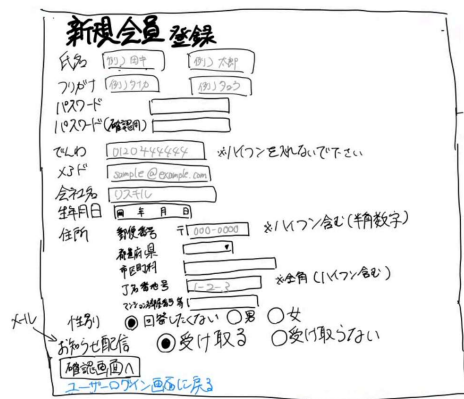 新規会員登録
氏名 例)田中 例)太郎
フリガナ 例)タナカ 例)タロウ
パスワード
パスワード(確認用)
でんわ 0120444444 ※ハイフンを入れないで下さい
メアド sample@example.com
会社名 リスキル
生年月日 年 月 日
住所 郵便番号 〒 000-0000 ※ハイフン含む(半角数字)
都道府県
市区町村
丁名番地号 1-2-3 ※全角(ハイフン含む)
性別 回答したくない 男 女
メール
お知らせ配信 受け取る 受け取らない
確認画面へ
ユーザーログイン画面に戻る